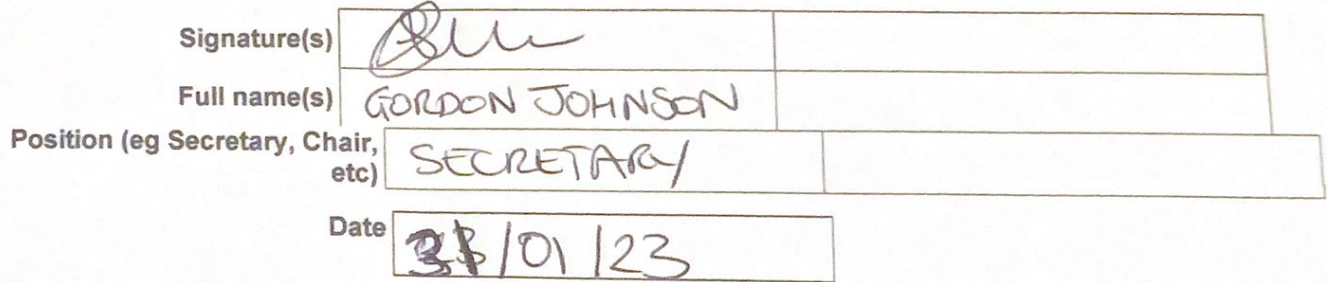 Signature(s)
Full name(s) GORDON JOHNSON
Position (eg Secretary, Chair,
etc) SECRETARY
Date 31/01/23